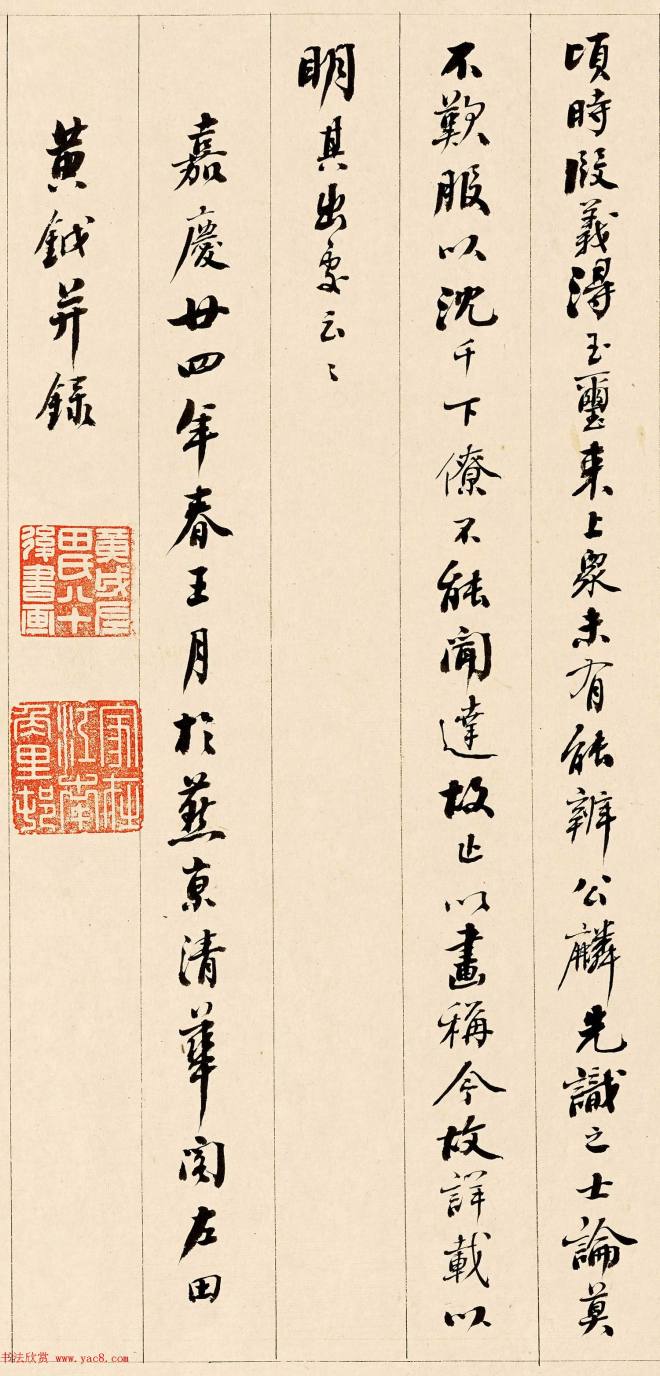 頃時段義得玉璽來上眾未有能辨公麟先識之士論莫
不歎服以沈于下僚不能聞達故止以畫稱今故詳載以
明其出處云〻
嘉慶廿四年春王月於燕京清華閣左田
黃鉞并錄
黃戉
田氏八十
後書画
家在
江南
里邨
书法欣赏 www.yac8.com